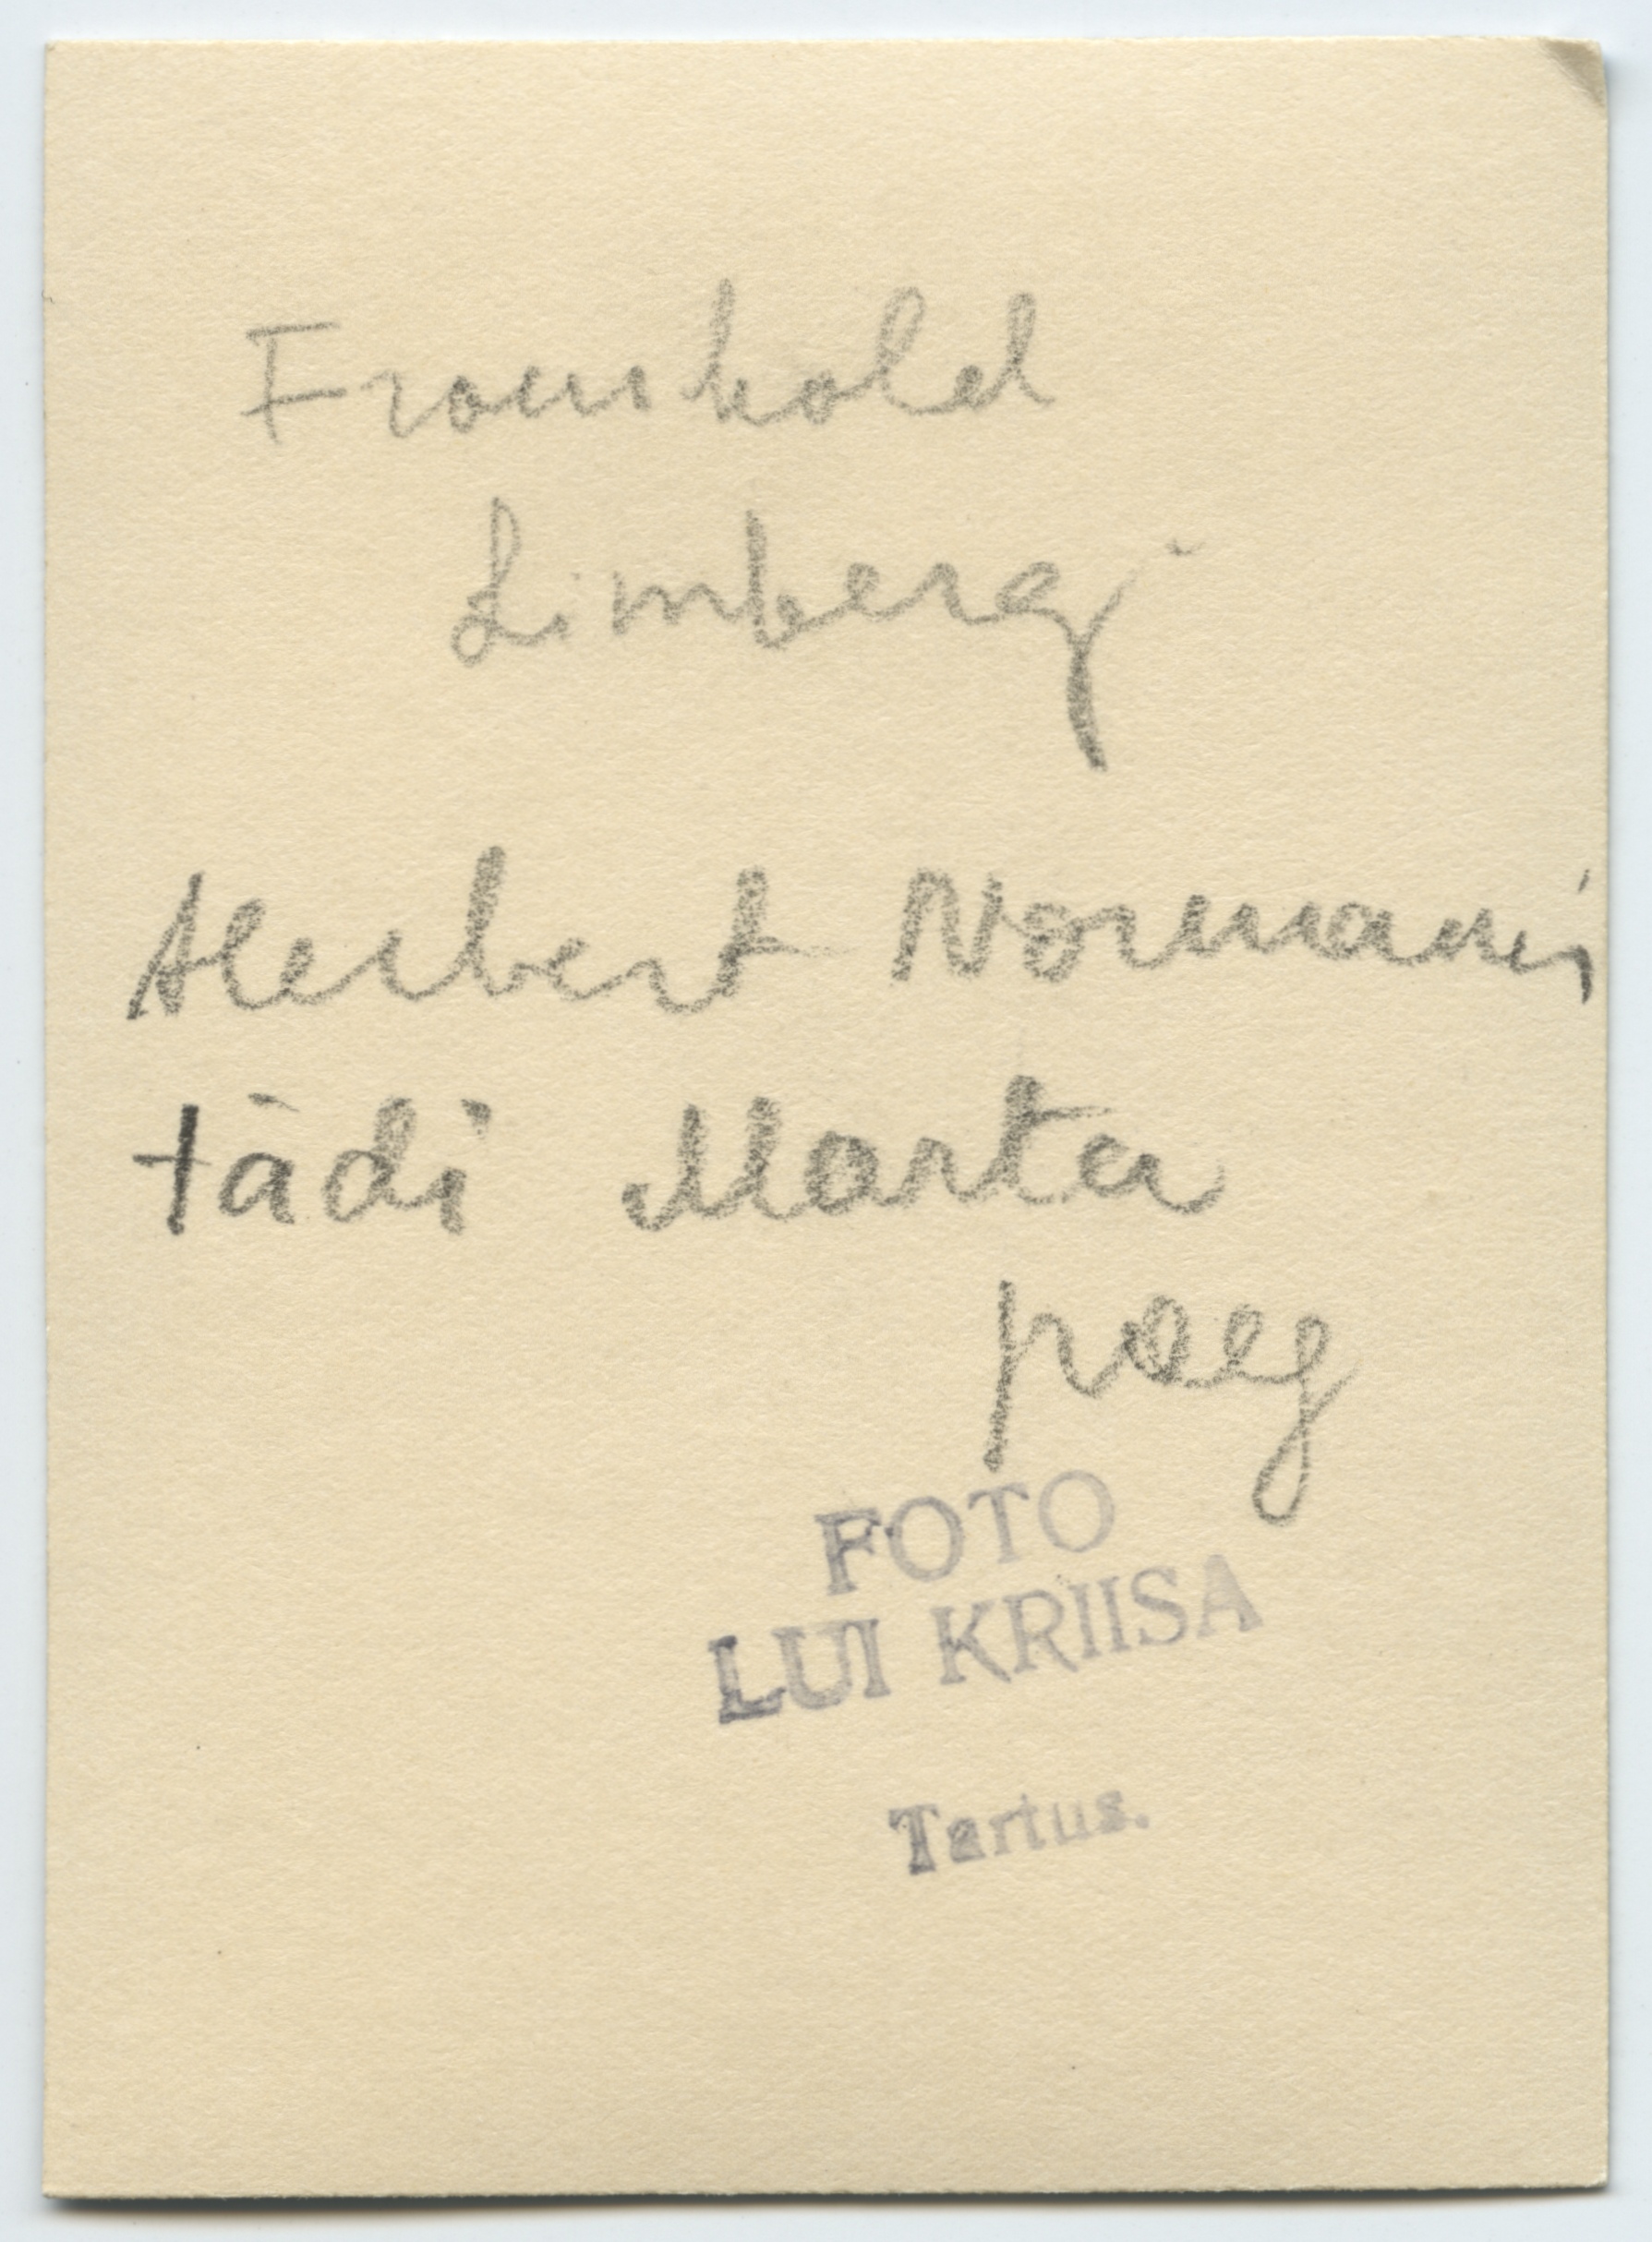 Fromhold
Limbergi
Herbert Normanni
tädi Marta
poeg
FOTO
LUI KRIISA
Tartus.